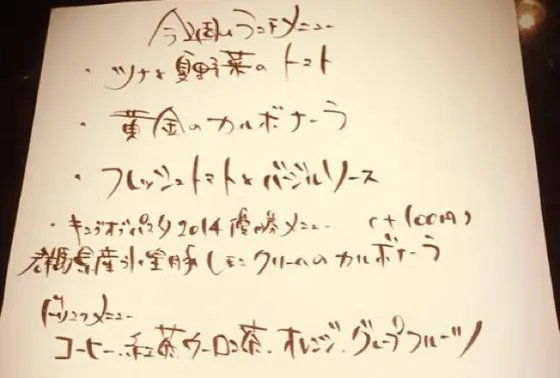 今週のランチメニュー
・ツナと夏野菜のトマト
・黄金のカルボナーラ
・フレッシュトマトとバジルソース
・キングオブパスタ2014優勝メニュー (+100円)
群馬県産氷室豚レモンクリームのカルボナーラ
ドリンクメニュー
コーヒー.紅茶.ウーロン茶.オレンジ.グレープフルーツ